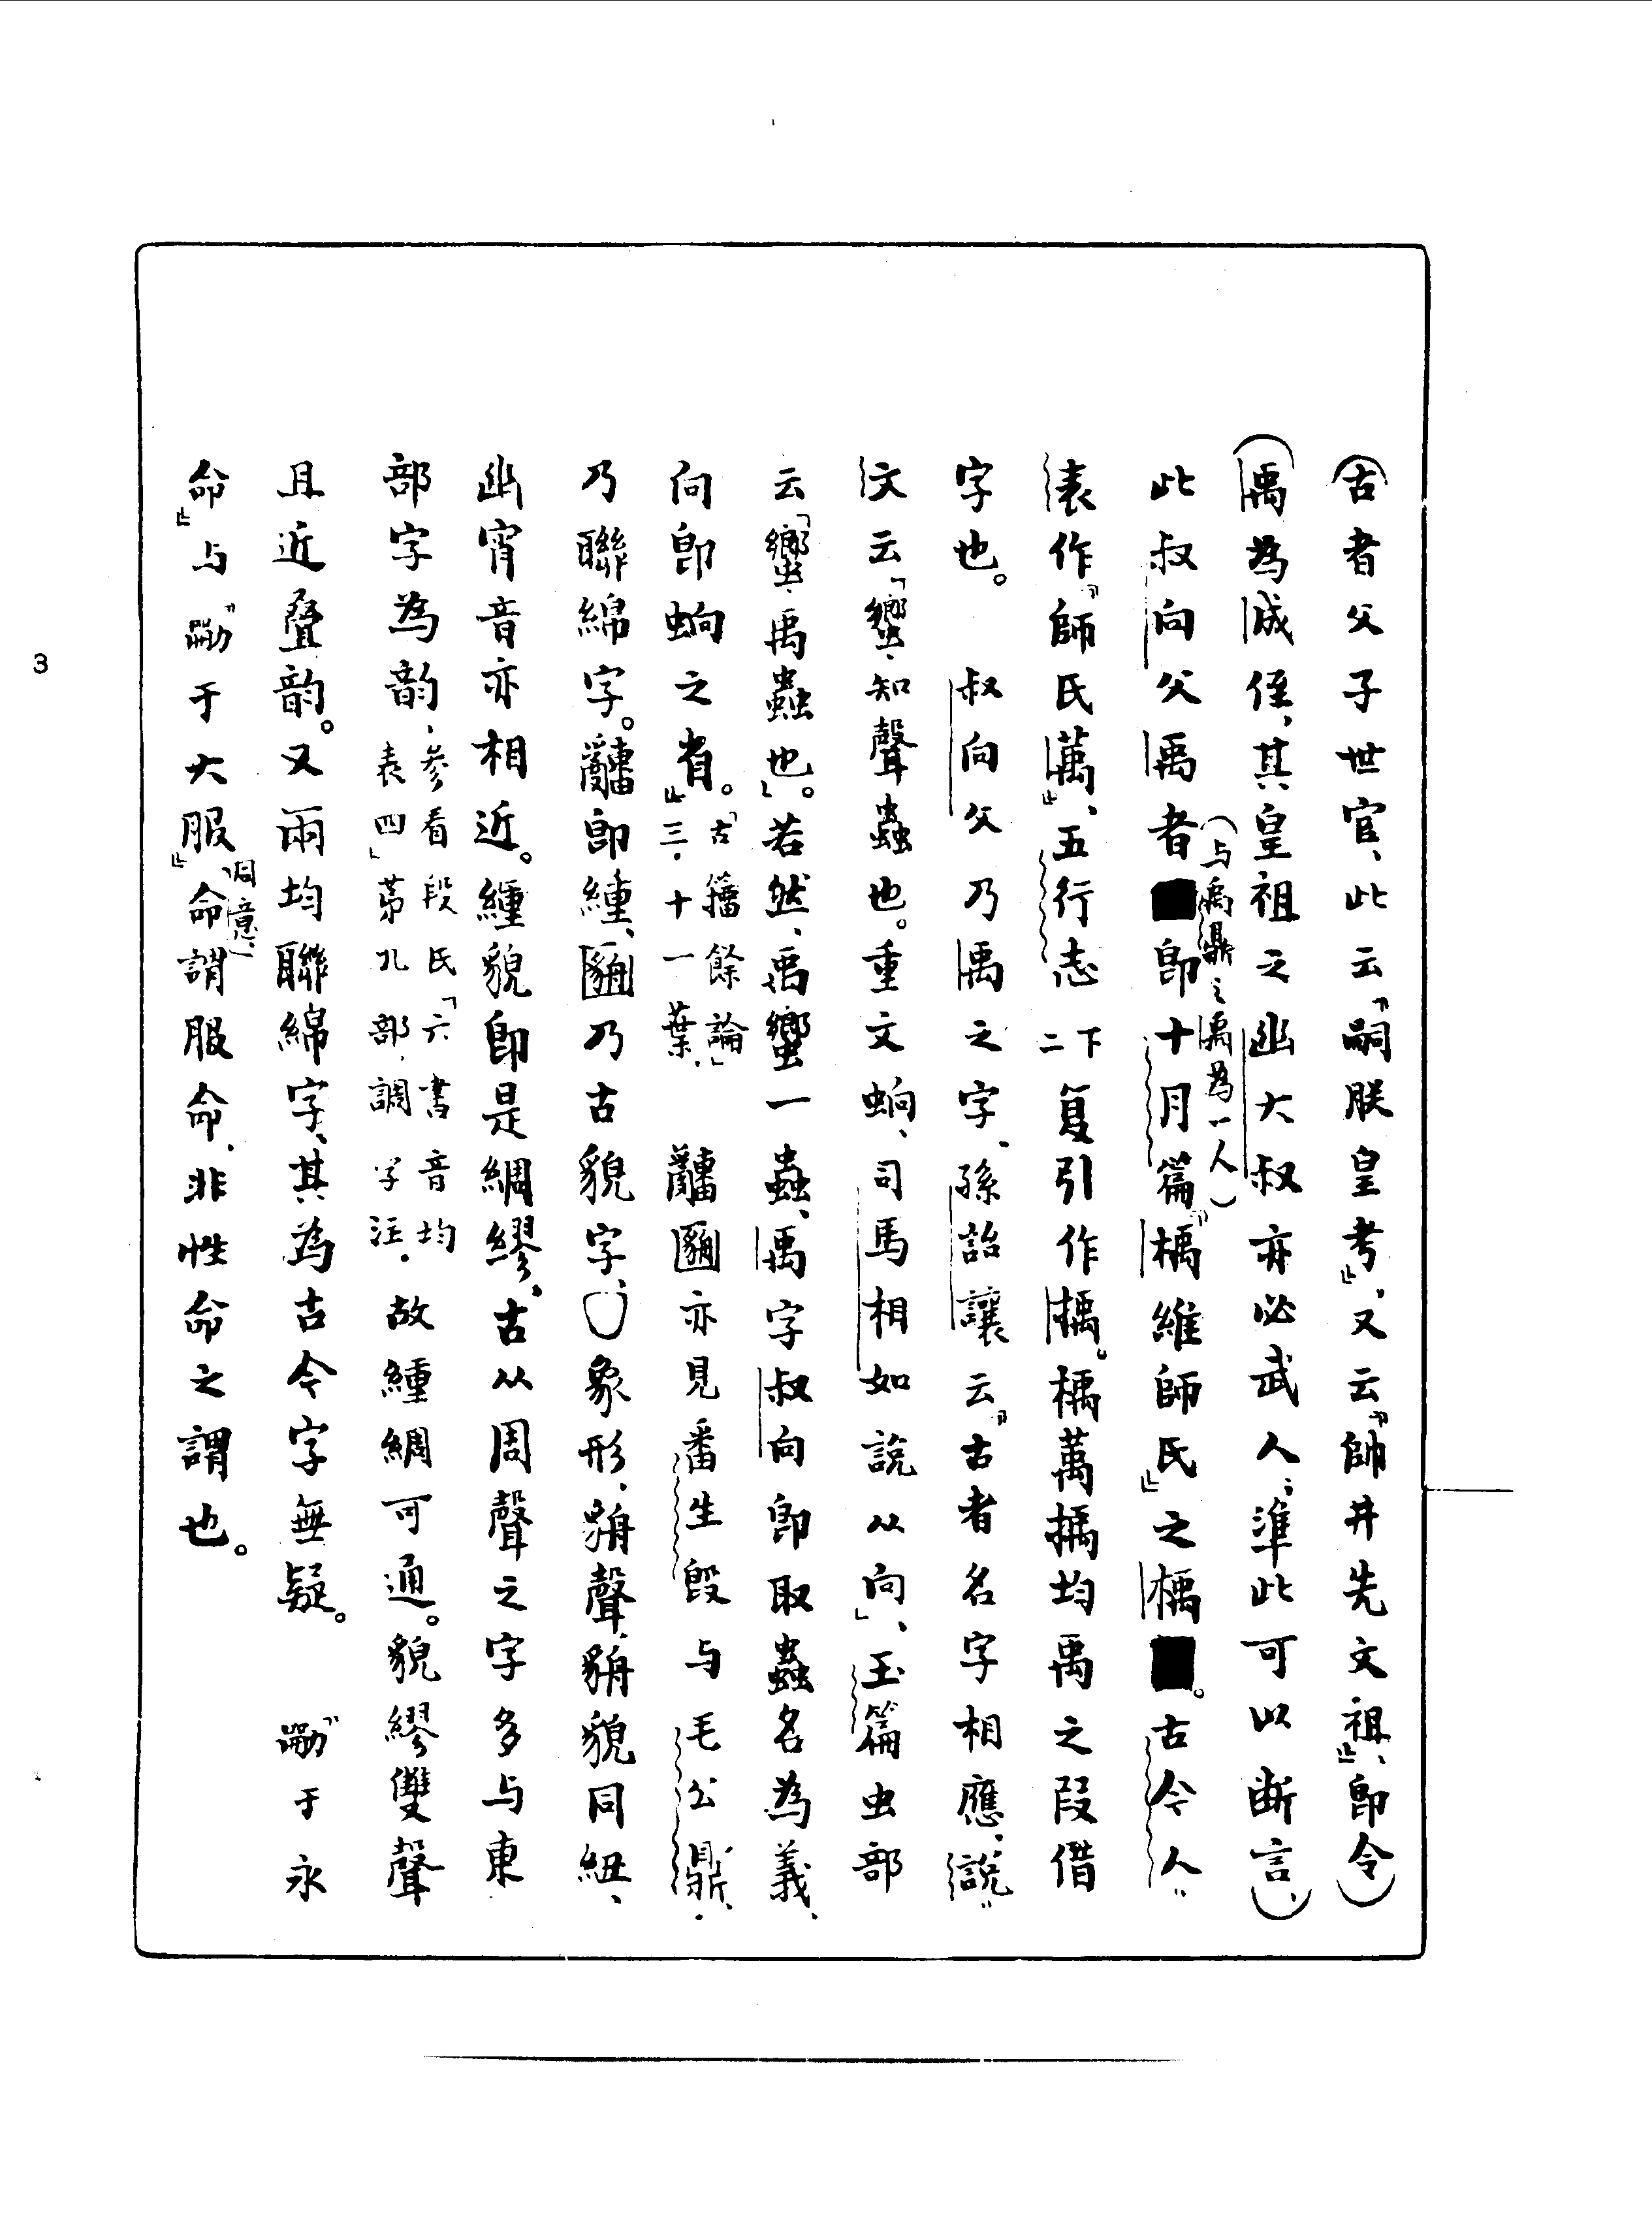 （古者父子世官、此云『嗣朕皇考』、又云『帥井先文祖』、即令）
（禹為成侄、其皇祖之幽大叔亦必武人；準此可以断言、）
此叔向父禹者（与禹鼎之禹為一人）即十月篇『楀維師氏』之楀。古今人
表作『師氏萬』、五行志下二复引作楀。楀萬摛均禹之叚借
字也。　叔向父乃禹之字、孫詒讓云『古者名字相應、說
文云「蠁、知聲蟲也。重文蚼、司馬相如說从向」、玉篇虫部
云「蠁、禹蟲也」。若然、禹蠁一蟲、禹字叔向即取蟲名為義、
向即蚼之省。』「古籀餘論」三．十一葉．　亦見番生𣪘与毛公鼎．
乃聯綿字。即緟、乃古貌字、象形、聲、貌同紐、
幽宵音亦相近。緟貌即是綢繆、古从周聲之字多与東
部字為韵、參看段氏「六書音均表四」第九部、調字注．故緟綢可通。貌繆雙聲
且近叠韵。又兩均聯綿字、其為古今字無疑。　『于永
命』与『于大服』同意、命謂服命、非性命之謂也。
3